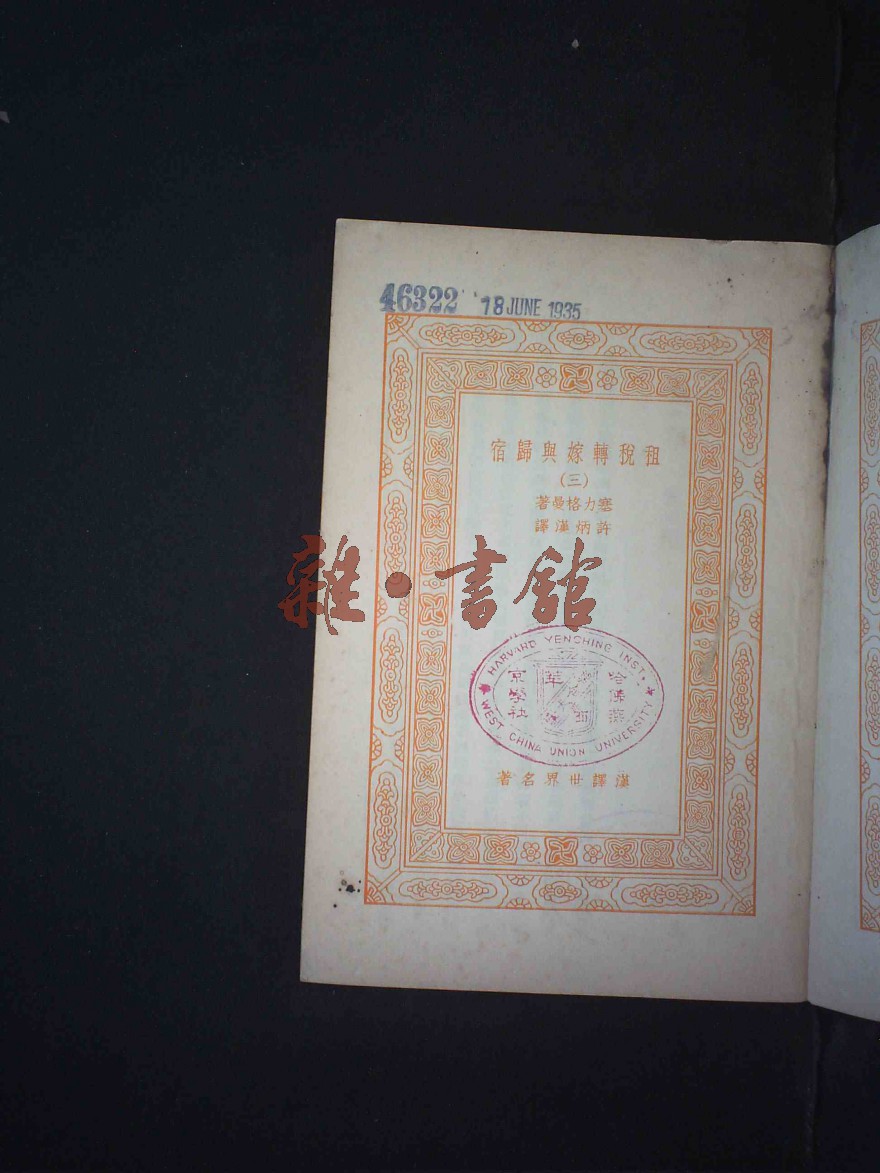 46322 18 JUNE 1935
租稅轉嫁與歸宿
(三)
塞力格曼著
許炳漢譯
雜·書館
HARVARD YENCHING INST.
哈佛燕
京學社
華西
WEST CHINA UNION UNIVERSITY
漢譯世界名著